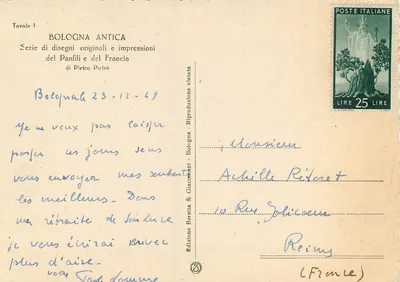 Tavola I
BOLOGNA ANTICA
Serie di disegni originali e impressioni
del Panfili e del Francia
di Pietro Pietra
23-12-49
Je ne veux pas laisser
passer ces jours sans
vous envoyer mes souhaits
les meilleurs. Dans
ma retraite de
je vous écrirai avec
plus d'aise.
Edizione Beretta & Giacomoni - Bologna - Riproduzione vietata
POSTE ITALIANE
LIRE 25 LIRE
Monsieur
Achille
10 Rue
Reims
(France)